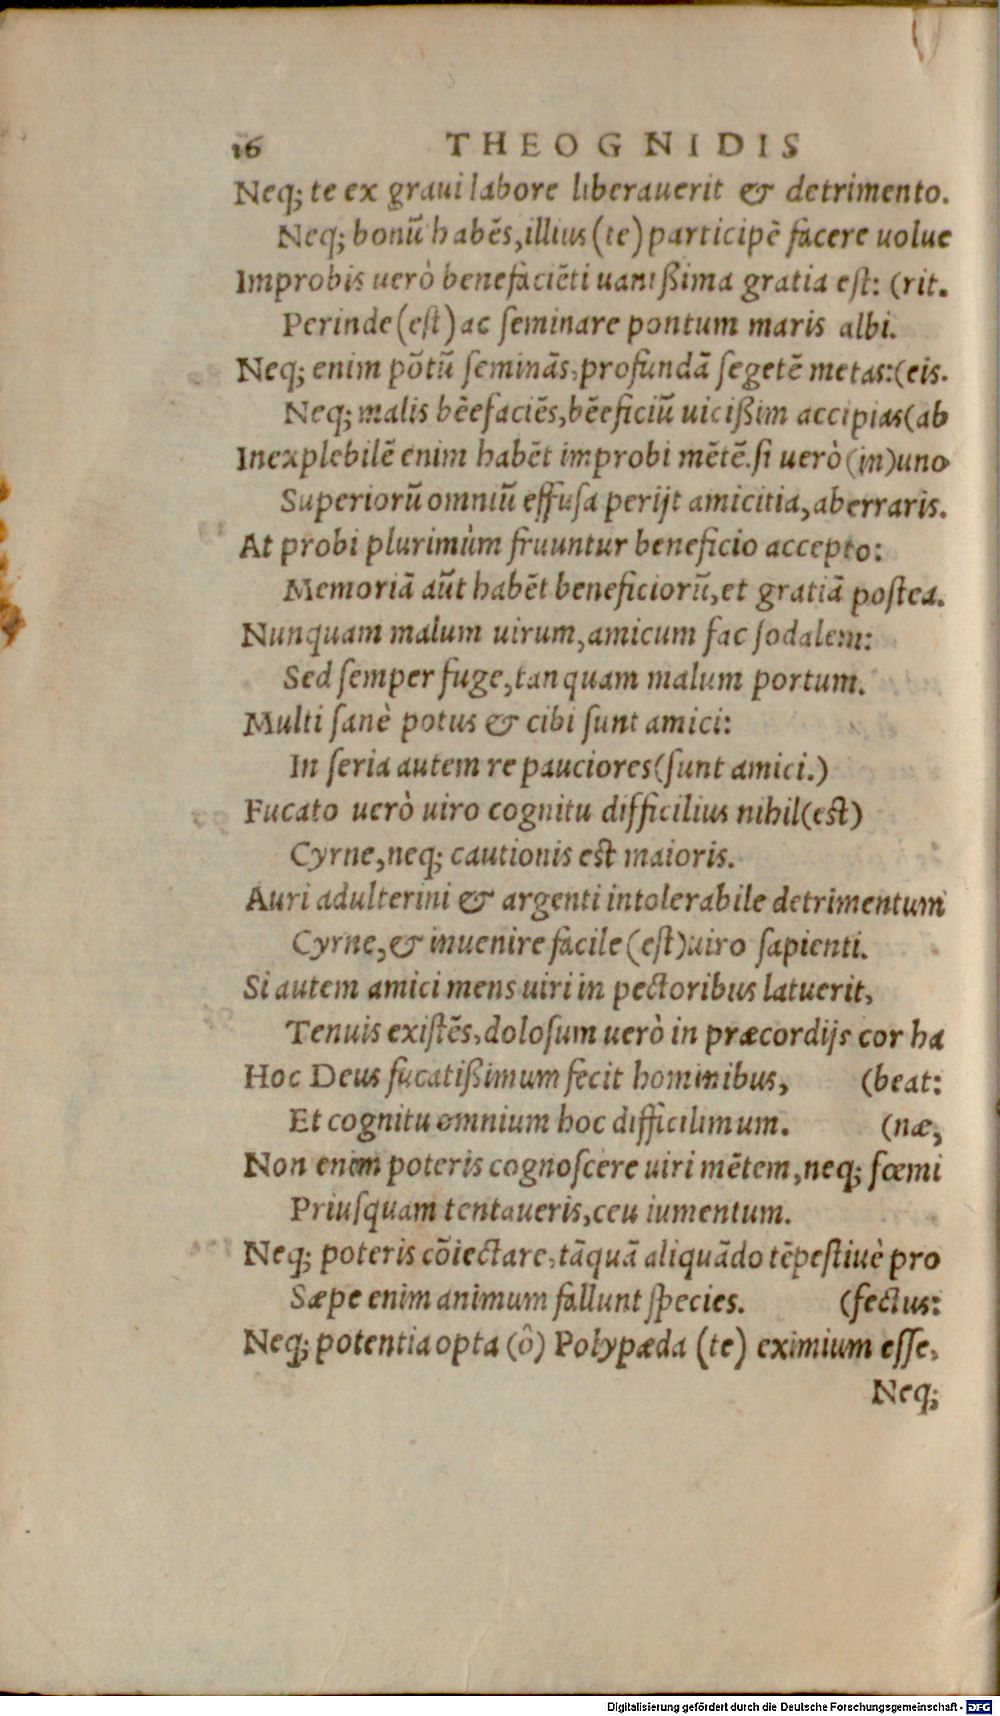 16 THEOGNIDIS
Neq; te ex graui labore liberauerit & detrimento.
Neq; bonũ habẽs, illius (te) participẽ facere uolue
Improbis uerò benefaciẽti uanißima gratia est: (rit.
Perinde (est) ac seminare pontum maris albi.
Neq; enim põtũ seminãs, profundã segetẽ metas: (eis.
Neq; malis bẽefaciẽs, bẽeficiũ uicißim accipias (ab
Inexplebilẽ enim habẽt improbi mẽtẽ. si uerò (in) uno
Superiorũ omniũ effusa perijt amicitia, aberraris.
At probi plurimùm fruuntur beneficio accepto:
Memoriã aũt habẽt beneficiorũ, et gratiã postea.
Nunquam malum uirum, amicum fac sodalem:
Sed semper fuge, tanquam malum portum.
Multi sanè potus & cibi sunt amici:
In seria autem re pauciores (sunt amici.)
Fucato uerò uiro cognitu difficilius nihil (est)
Cyrne, neq; cautionis est maioris.
Auri adulterini & argenti intolerabile detrimentum
Cyrne, & inuenire facile (est) uiro sapienti.
Si autem amici mens uiri in pectoribus latuerit,
Tenuis existẽs, dolosum uerò in præcordijs cor ha
Hoc Deus fucatißimum fecit hominibus, (beat:
Et cognitu omnium hoc difficilimum. (næ,
Non enim poteris cognoscere uiri mẽtem, neq; fœmi
Priusquam tentaueris, ceu iumentum.
Neq; poteris cõiectare, tãquã aliquãdo tẽpestiuè pro
Sæpe enim animum fallunt species. (fectus:
Neq; potentia opta (ô) Polypæda (te) eximium esse,
Neq;
Digitalisierung gefördert durch die Deutsche Forschungsgemeinschaft - DFG